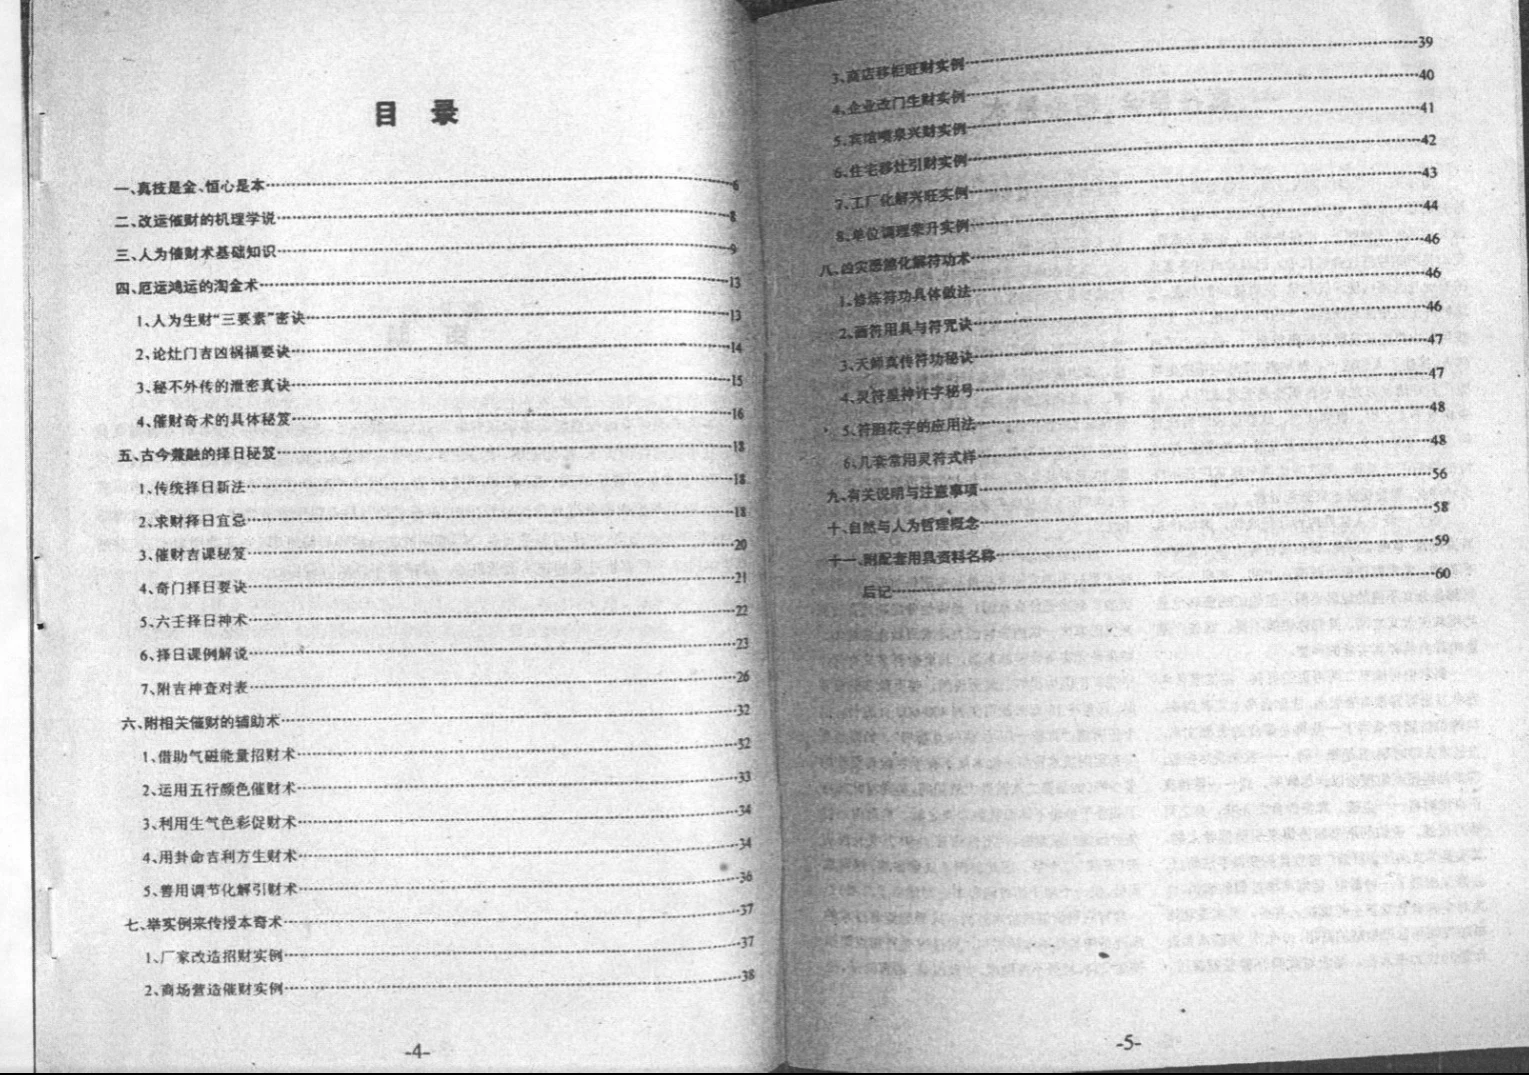 目 录
一、真技是金、恒心是本……6
二、改运催财的机理学说……8
三、人为催财术基础知识……9
四、厄运鸿运的淘金术……13
1、人为生财“三要素”密诀……13
2、论灶门吉凶祸福要诀……14
3、秘不外传的泄密真诀……15
4、催财奇术的具体秘笈……16
五、古今兼融的择日秘笈……18
1、传统择日新法……18
2、求财择日宜忌……18
3、催财吉课秘笈……20
4、奇门择日要诀……21
5、六壬择日神术……22
6、择日课例解说……23
7、附吉神查对表……26
六、附相关催财的辅助术……32
1、借助气磁能量招财术……32
2、运用五行颜色催财术……33
3、利用生气色彩促财术……34
4、用卦命吉利方生财术……34
5、善用调节化解引财术……36
七、举实例来传授本裔术……37
1、厂家改造招财实例……37
2、商场营造催财实例……38
-4-
3、商店移柜旺财实例……39
4、企业改门生财实例……40
5、宾馆喷泉兴财实例……41
6、住宅移灶引财实例……42
7、工厂化解兴旺实例……43
8、单位调理荣升实例……44
八、凶灾恶煞化解符功术……46
1、修炼符功具体做法……46
2、画符用具与符咒诀……46
3、天师真传符功秘诀……47
4、灵符星神许字秘号……47
5、符胆花字的应用法……48
6、几套常用灵符式样……48
九、有关说明与注意事项……56
十、自然与人为哲理概念……58
十一、附配套用具资料名称……59
后记……60
-5-